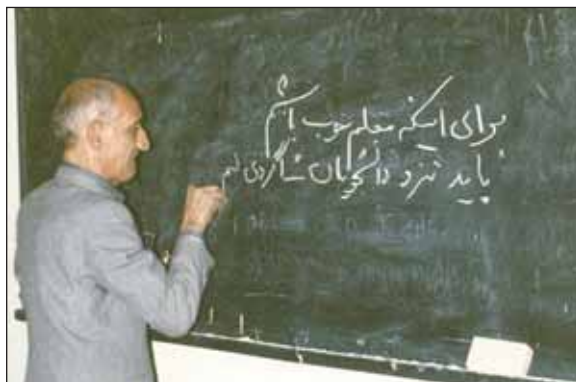 برای اینکه معلم خوب باشم
باید نزد دانشجویان شاگردی کنم